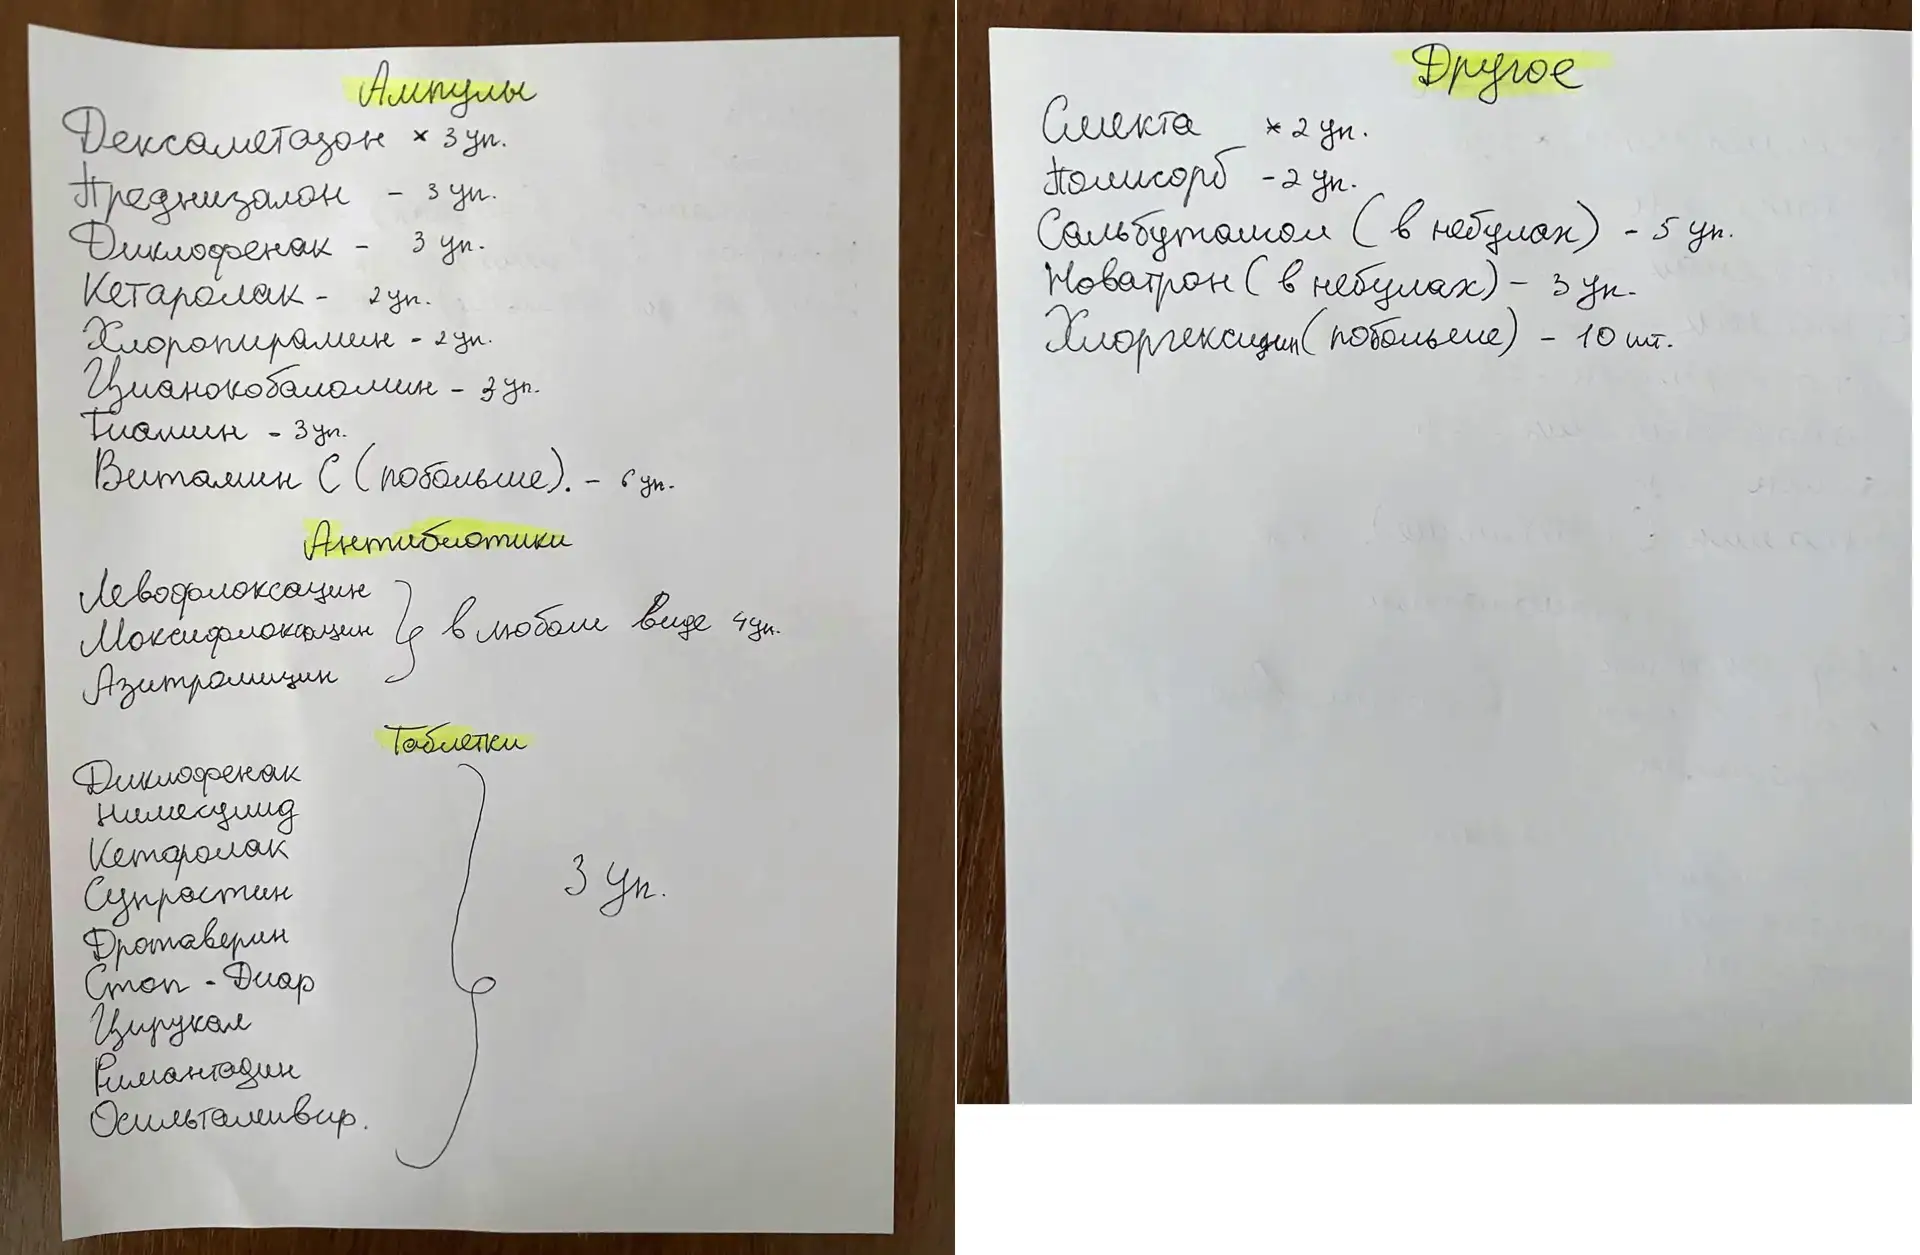 Ампулы
Дексаметазон × 3 уп.
Преднизалон - 3 уп.
Диклофенак - 3 уп.
Кетаролак - 2 уп.
Хлоропирамин - 2 уп.
Цианокобаламин - 3 уп.
Тиамин - 3 уп.
Витамин С (побольше). - 6 уп.
Антибиотики
Левофлоксацин
Моксифлоксацин } в любом виде 4 уп.
Азитромицин
Таблетки
Диклофенак
Нимесулид
Кетаролак
Супрастин
3 уп.
Дротаверин
Стоп - Диар
Цирукал
Римантадин
Осильтамивир.
Другое
Смекта × 2 уп.
Полисорб - 2 уп.
Сальбутамол (в небулах) - 5 уп.
Новатрон (в небулах) - 3 уп.
Хлоргексидин (побольше) - 10 шт.